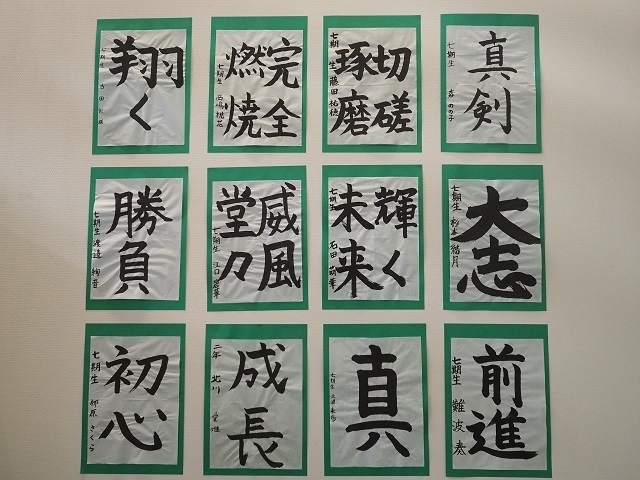 翔く
七期生 吉田
完全
燃焼
七期生
切磋
琢磨
七期生 藤田
真剣
七期生 のの子
勝負
七期生 渡邉 絢音
威風
堂々
七期生 江口
輝く
未来
七期生 石田 萌華
大志
七期生 杉本 結月
初心
七期生 さくら
成長
二年 北川
真
七期生
前進
七期生 難波 奏